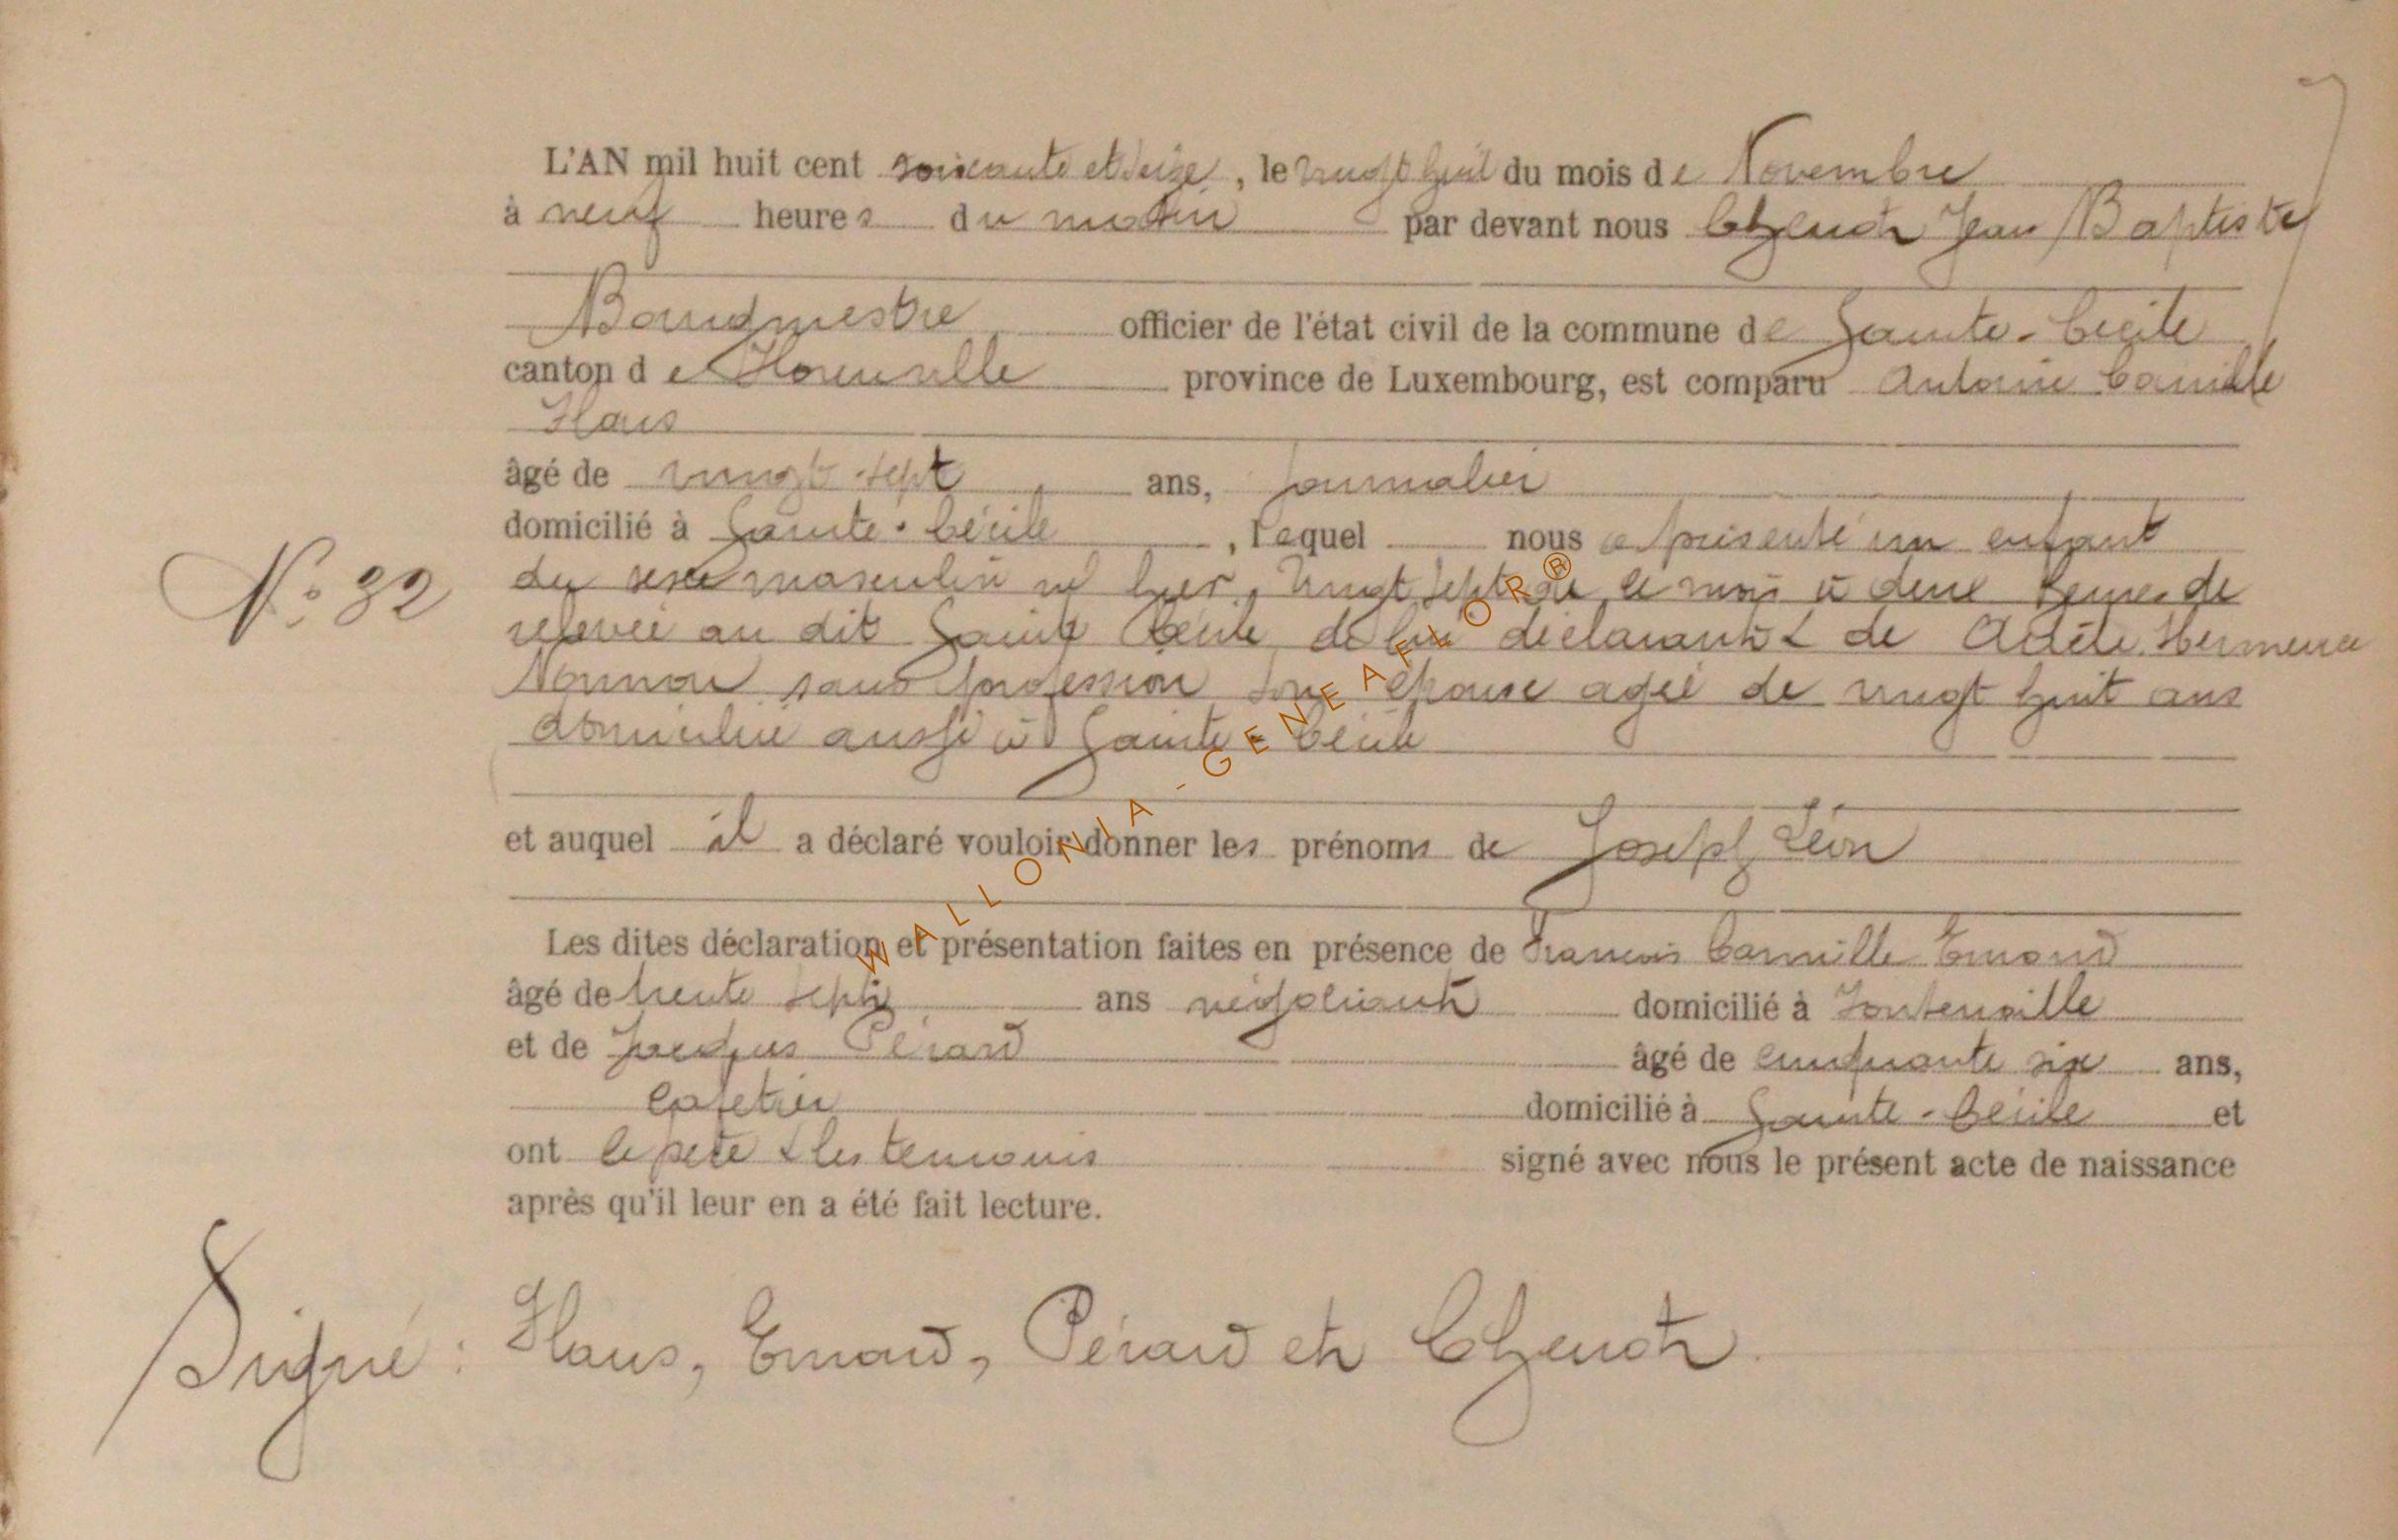 L'AN mil huit cent soixante et seize, le vingt huit du mois de Novembre
à neuf heures du matin par devant nous Chenot Jean Baptiste
Bourgmestre officier de l'état civil de la commune de Sainte-Cécile
canton de Florenville province de Luxembourg, est comparu Antoine Camille
Haus
âgé de vingt-sept ans, journalier
domicilié à Sainte-Cécile, lequel nous a présenté un enfant
N° 32
du sexe masculin né hier, vingt sept de ce mois à deux heures de
relevée au dit Sainte Cécile de lui déclarant & de Adèle
sans profession son épouse agée de vingt huit ans
domiciliée aussi à Sainte-Cécile
et auquel il a déclaré vouloir donner les prénoms de Joseph Léon
Les dites déclaration et présentation faites en présence de Francois Camille Emond
âgé de trente sept ans négociant domicilié à Fontenoille
et de Jacques Pérard âgé de cinquante six ans,
cafetier domicilié à Sainte-Cécile et
ont le père & les temoins signé avec nous le présent acte de naissance
après qu'il leur en a été fait lecture.
Signé : Haus, Emond, Pérard et Chenot
WALLONIA-GENEAFLOR®